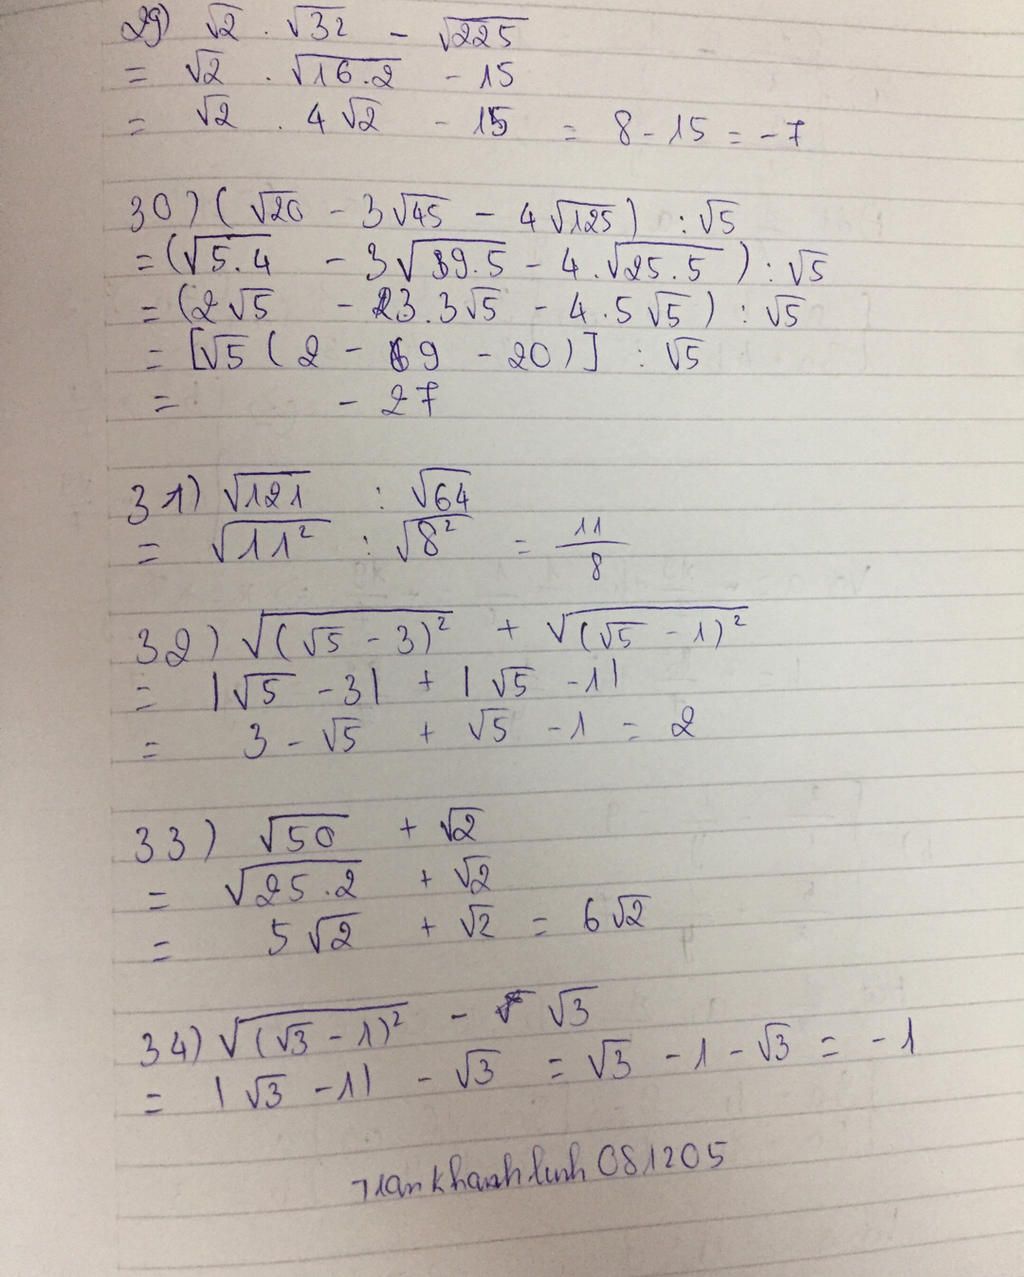 29) √2 . √32 - √225
= √2 . √16.2 - 15
= √2 . 4√2 - 15 = 8 - 15 = -7
30) (√20 - 3√45 - 4√125) : √5
= (√5.4 - 3√9.5 - 4.√25.5) : √5
= (2√5 - 3.3√5 - 4.5√5) : √5
= [√5 (2 - 9 - 20)] : √5
= - 27
31) √121 : √64
= √11² : √8² = 11/8
32) √(√5 - 3)² + √(√5 - 1)²
= |√5 - 3| + |√5 - 1|
= 3 - √5 + √5 - 1 = 2
33) √50 + √2
= √25.2 + √2
= 5√2 + √2 = 6√2
34) √(√3 - 1)² - √3
= |√3 - 1| - √3 = √3 - 1 - √3 = -1
Trankhanhlinh081205